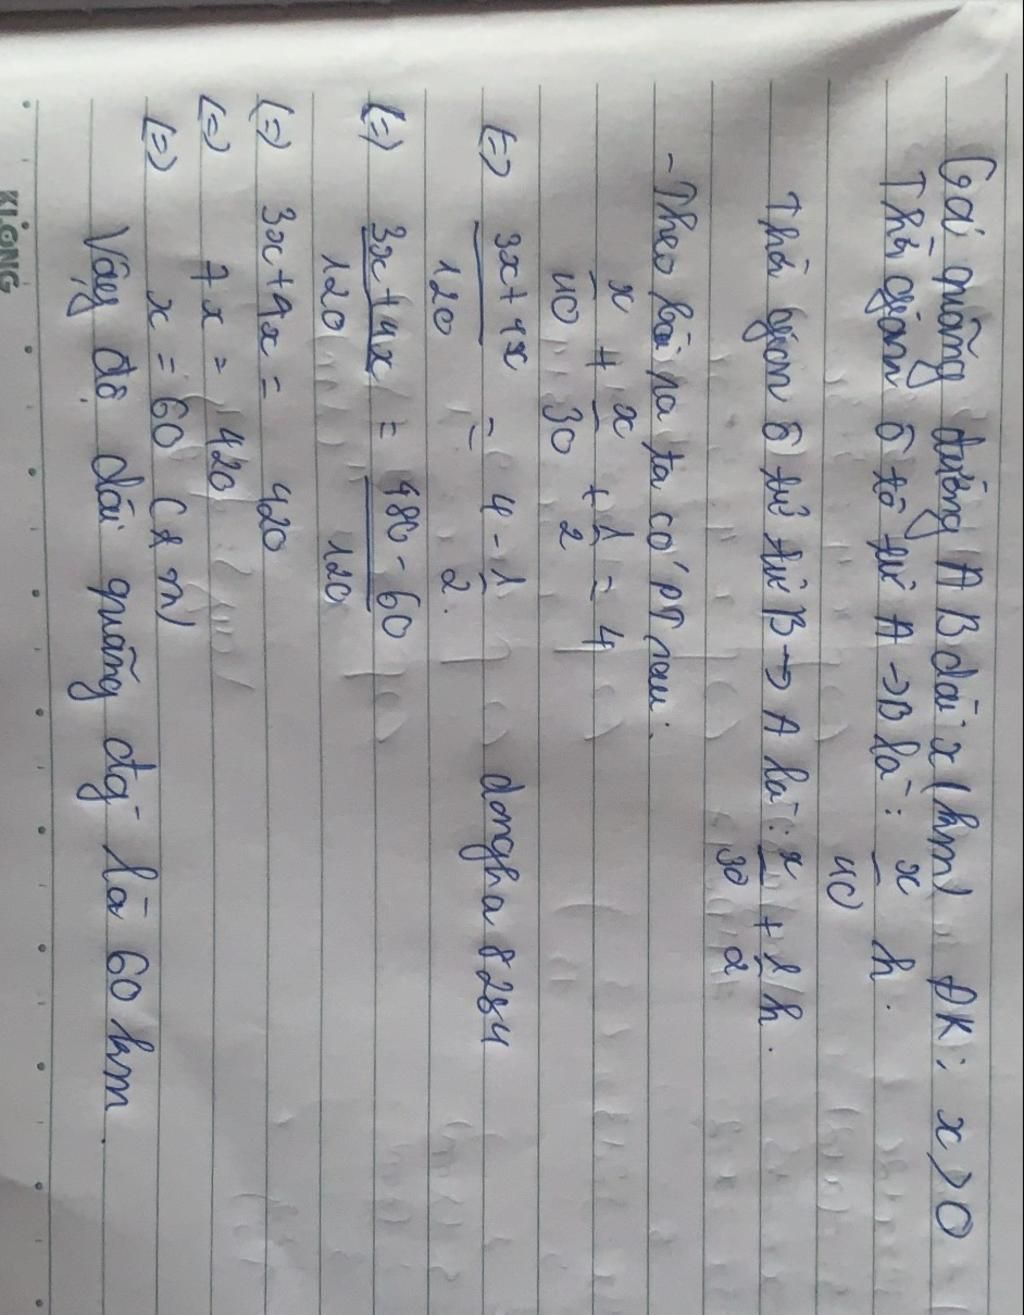 Gọi quãng đường AB dài x (km) ĐK: x > 0
Thời gian ô tô từ A → B là: x/40 h.
Thời gian ô từ từ B → A là: x/30 + 1/2 h.
- Theo bài ra ta có PT sau:
x/40 + x/30 + 1/2 = 4
(=) 3x + 4x/120 = 4 - 1/2. dongha8284
(=) 3x + 4x/120 = 480 - 60/120
(=) 3x + 4x = 420
(=) 7x = 420
(=) x = 60 (km)
Vậy độ dài quãng đg là 60 km.
KLONG